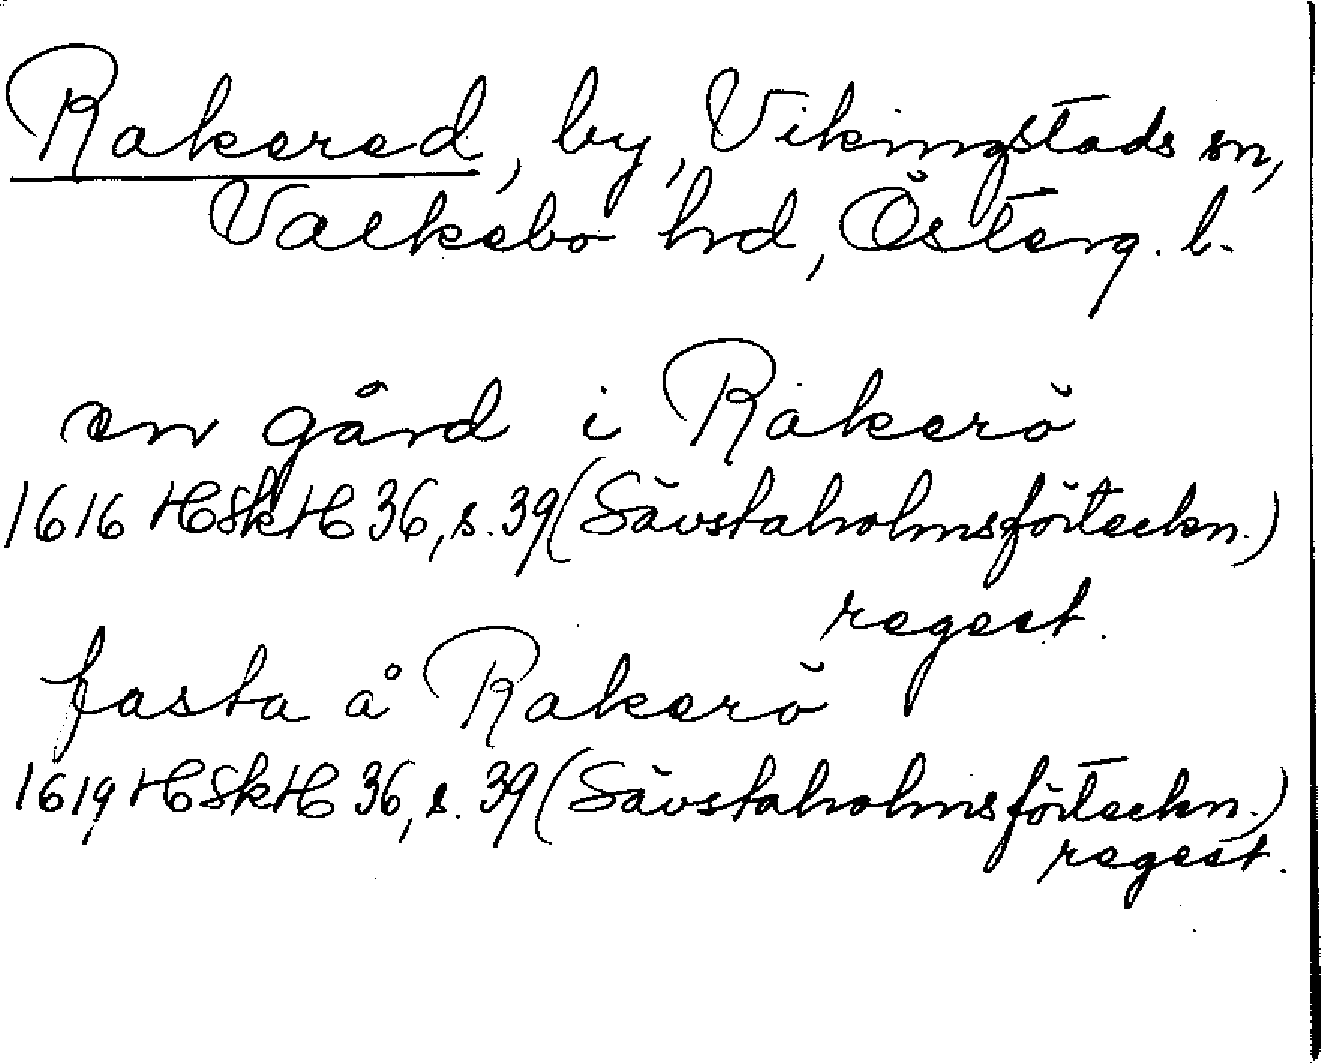 Rakered, by, Vikingstads sn,
Valkebo hrd, Österg. l.
en gård i Rakerö
1616 HSkH 36, s. 39 (Sävstaholmsförteckn.)
regest.
fasta å Rakerö
1619 HSkH 36, s. 39 (Sävstaholmsförteckn.)
regest.